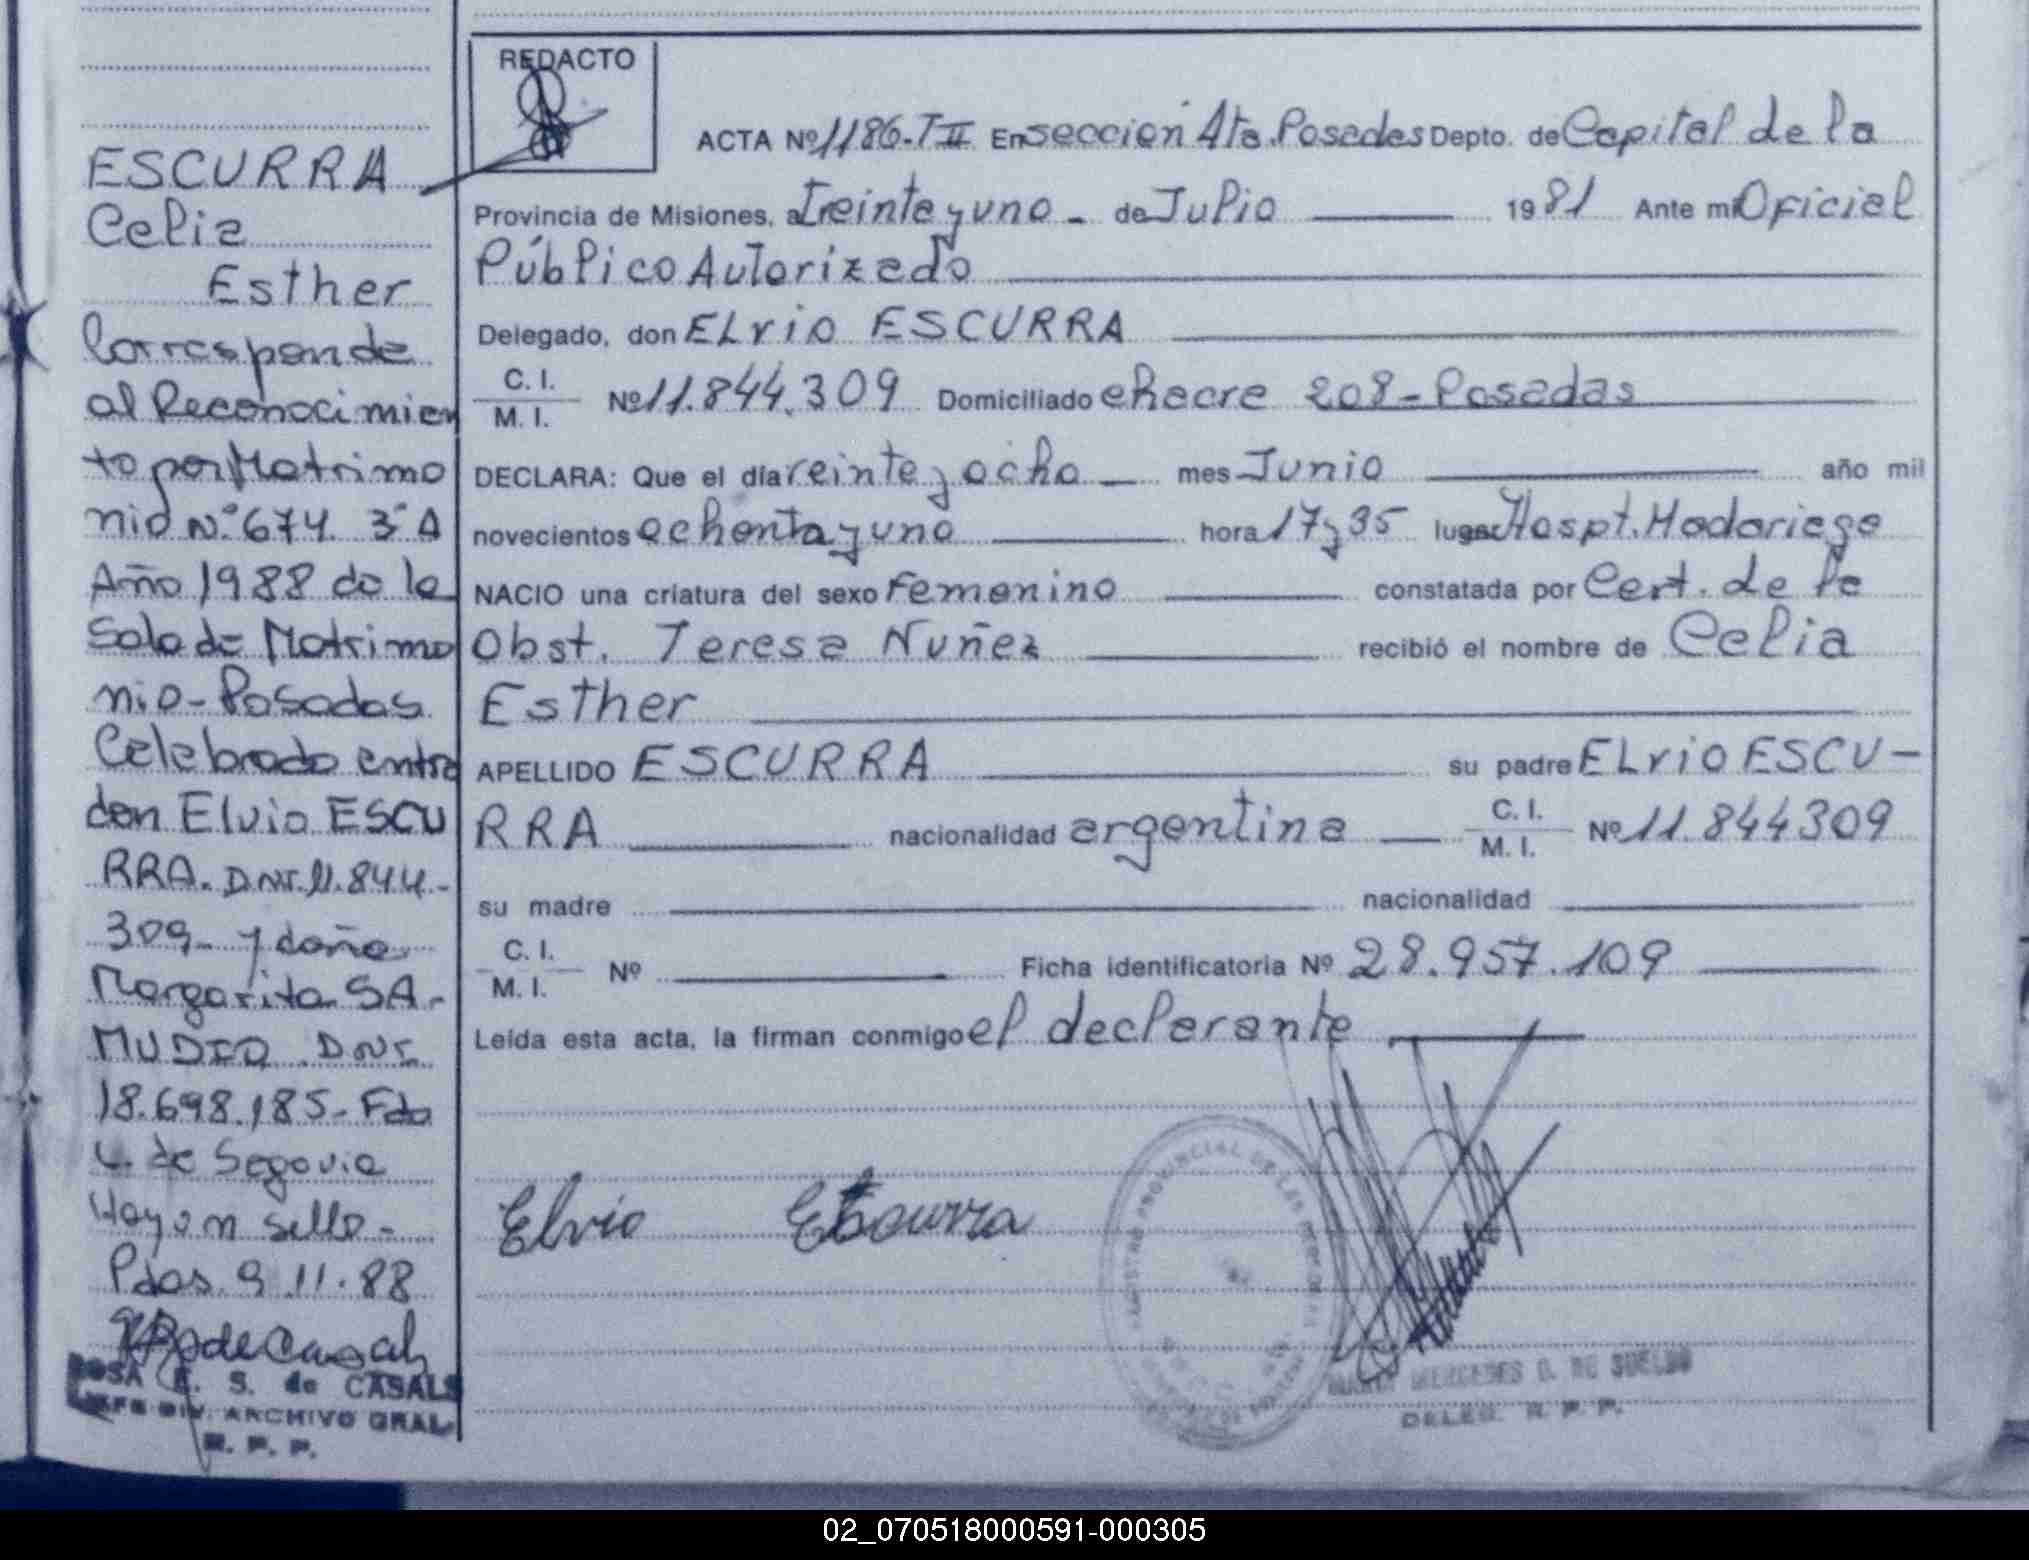 REDACTO
ESCURRA
Celia
Esther
Corresponde
al Reconocimien
to por Matrimo
nio Nº 674. 3º A
Año 1988 de la
Sala de Matrimo
nio - Posadas
Celebrado entre
don Elvio ESCU
RRA. D.N.I. 11.844-
309- y doña
Margarita SA-
MUDIO D.N.I.
18.698.185- Fdo
L. de Segovia
Hay un sello -
Pdas. 9.11.88
ROSA E. S. de CASALS
JEFE DIV. ARCHIVO GRAL.
R. P. P.
ACTA Nº 1186-T II En sección 4ta. Posadas Depto. de Capital de la
Provincia de Misiones, a Treinta y uno - de Julio 1981 Ante mi Oficial
Público Autorizado
Delegado, don ELVIO ESCURRA
C. I.
M. I. Nº 11.844.309 Domiciliado chacra 208 - Posadas
DECLARA: Que el día veinte y ocho mes Junio año mil
novecientos ochenta y uno hora 17 y 35 lugar Hospt. Madariaga
NACIO una criatura del sexo Femenino constatada por Cert. de la
Obst. Teresa Nuñez recibió el nombre de Celia
Esther
APELLIDO ESCURRA su padre ELVIO ESCU-
RRA nacionalidad argentina C. I. M. I. Nº 11.844309
su madre nacionalidad
C. I.
M. I. Nº Ficha identificatoria Nº 28.957.109
Leída esta acta, la firman conmigo el declarante
Elvio Escurra
MERCEDES D. DE SUELDO
DELEG. R. P. P.
02_070518000591-000305